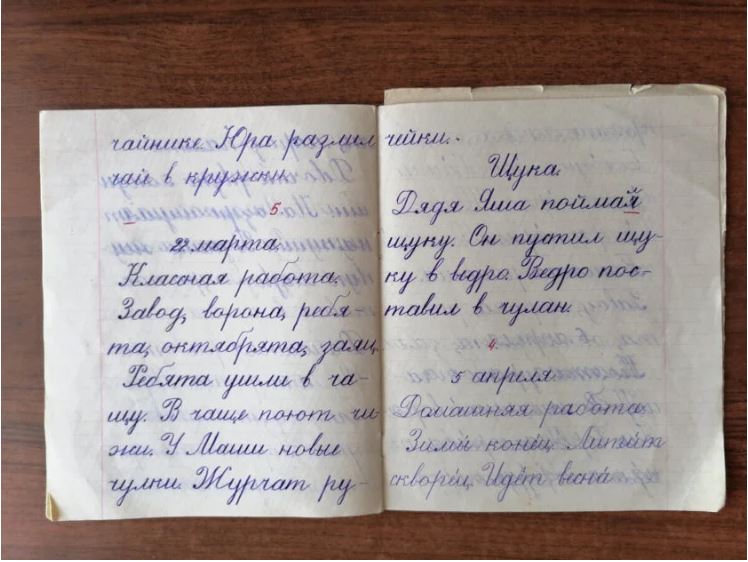 чайнике. Юра разлил
чай в кружки.
5.
22 марта.
Классная работа.
Завод, ворона, ребя-
та, октябрята, заяц.
Ребята ушли в ча-
щу. В чаще поют чи-
жи. У Маши новые
чулки. Журчат ру-
чейки.
Щука.
Дядя Яша поймай
щуку. Он пустил щу-
ку в ведро. Ведро пос-
тавил в чулан.
4.
5 апреля.
Домашняя работа.
Зимы́ коне́ц. Лети́т
скворе́ц. Идёт весна́